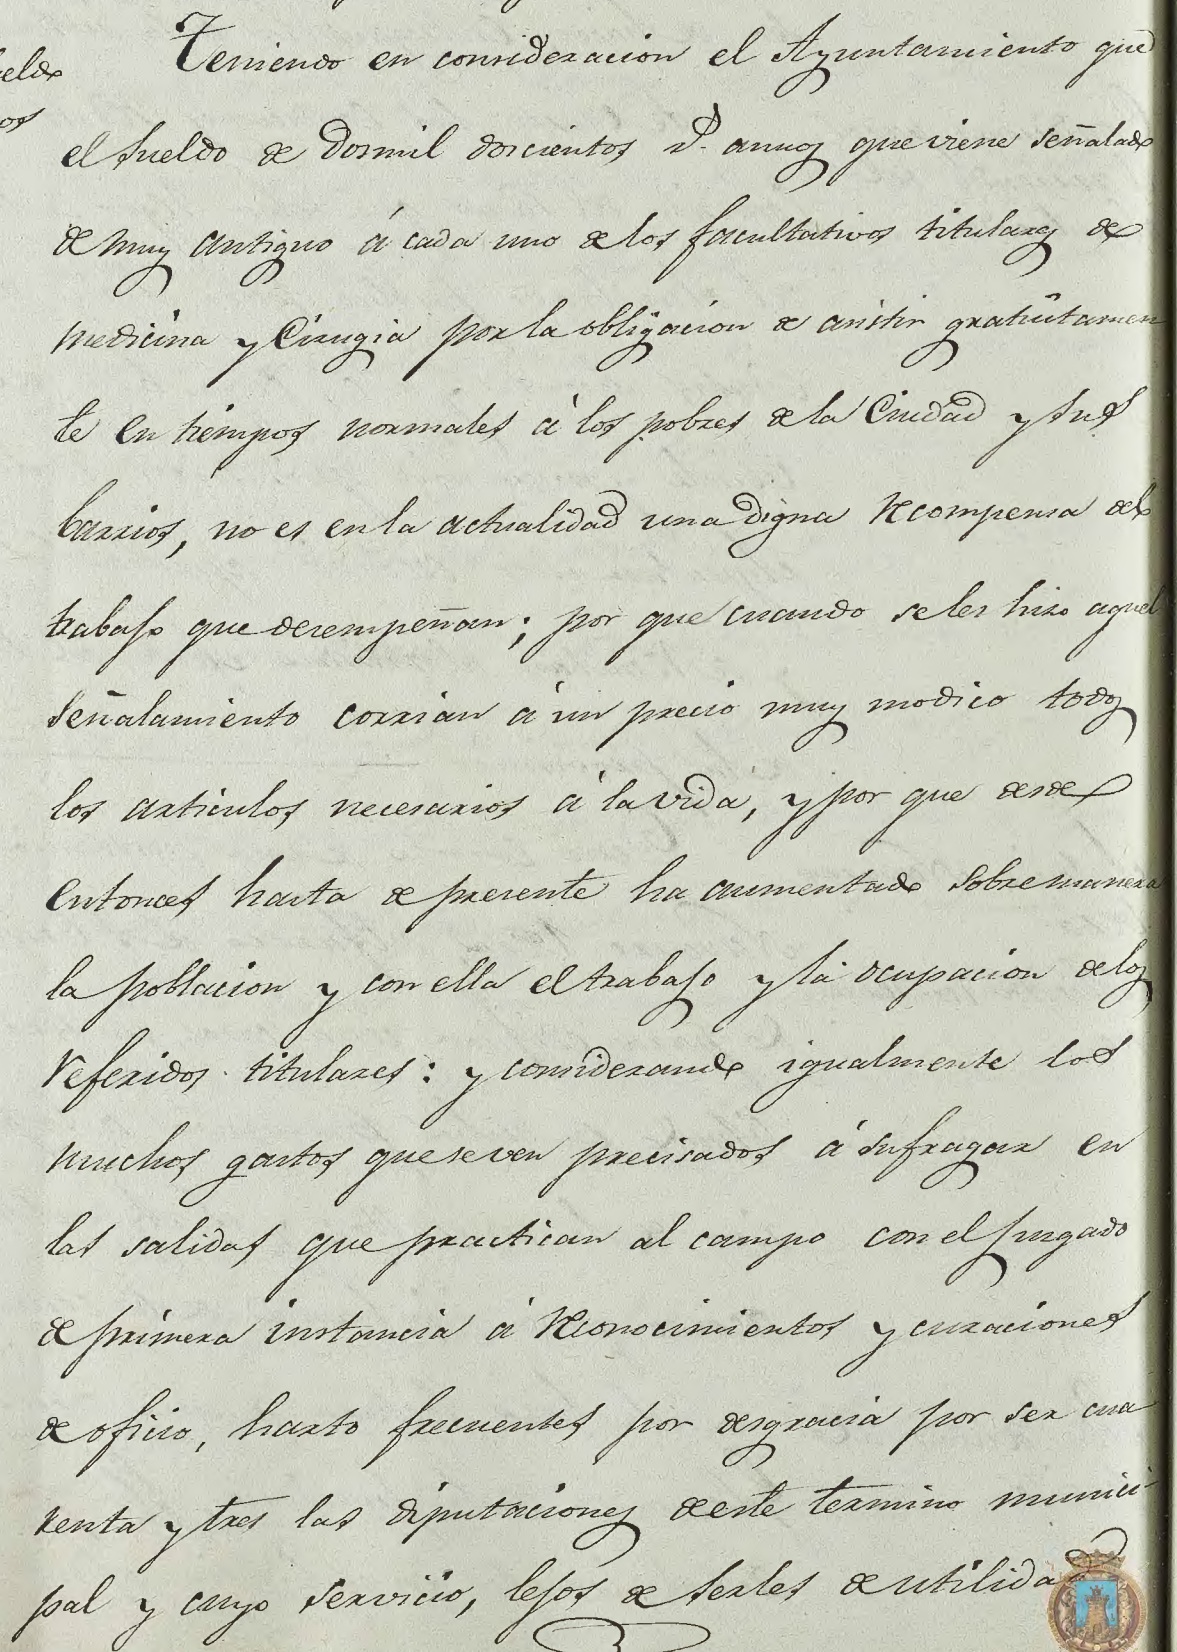 Teniendo en consideracion el Ayuntamiento que
el sueldo de Dosmil doscientos r.s annos que viene señalado
de muy antiguo á cada uno de los facultativos titulares de
medicina y Cirugia por la obligacion de asistir gratuitamen
te en tiempos normales á los pobres de la Ciudad y sus
barrios, no es en la actualidad una digna recompensa del
trabajo que desempeñan; por que cuando se les hizo aquel
señalamiento corrian á un precio muy modico todos
los articulos necesarios á la vida, y por que desde
entonces hasta de presente ha aumentado sobremanera
la poblacion y con ella el trabajo y la ocupacion de los
referidos titulares: y considerando igualmente los
muchos gastos que se ven precisados á sufragar en
las salidas que practican al campo con el jusgado
de primera instancia á reconocimientos y curaciones
de oficio, harto frecuentes por desgracia por ser cua
renta y tres las diputaciones de este termino munici-
pal y cuyo servicio, lejos de serles de utilidad